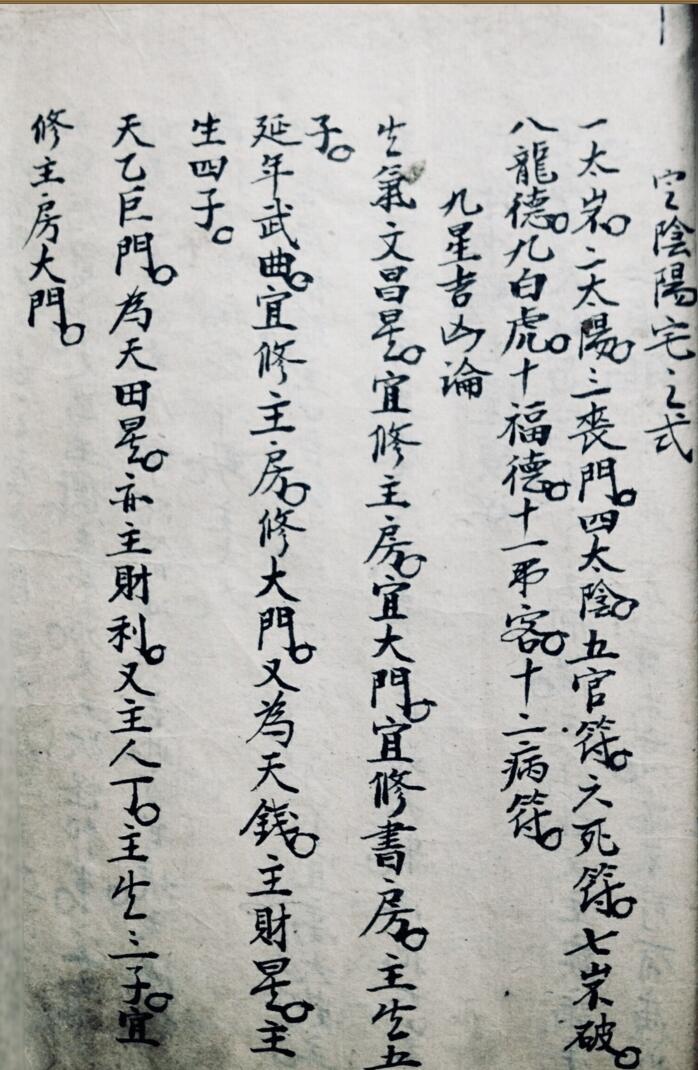 定陰陽宅之式
一太岁。二太陽。三喪門。四太陰。五官符。六死符。七岁破。
八龍德。九白虎。十福德。十一吊客。十二病符。
九星吉凶論
生氣文昌星。宜修主房。宜大門。宜修書房。主生五
子。
延年武曲。宜修主房。修大門。又為天錢。主財星。主
生四子。
天乙巨門。為天田星。亦主財利。又主人丁。主生三子。宜
修主房大門。